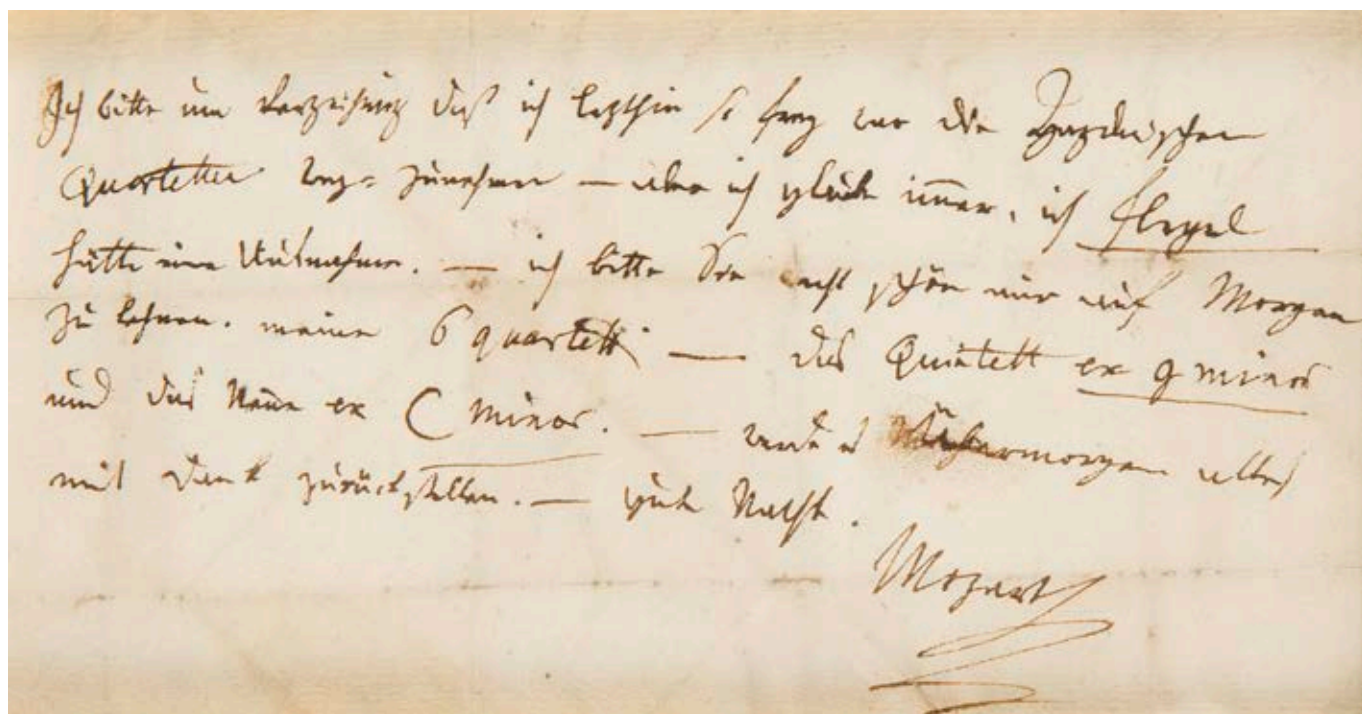 Ich bitte um Verzeihung daß ich letzthin so frey war die Haydnischen
Quartetten weg= zunehmen — aber ich glaub immer, ich flegel
hätte eine Ausnahme. — ich bitte Sie recht schön mir auf Morgen
zu lehnen. meine 6 quartetti — das Quintett ex g minor
und das Neue ex C minor. — werde es übermorgen alles
mit dank zurückstellen. — gute Nacht.
Mozart